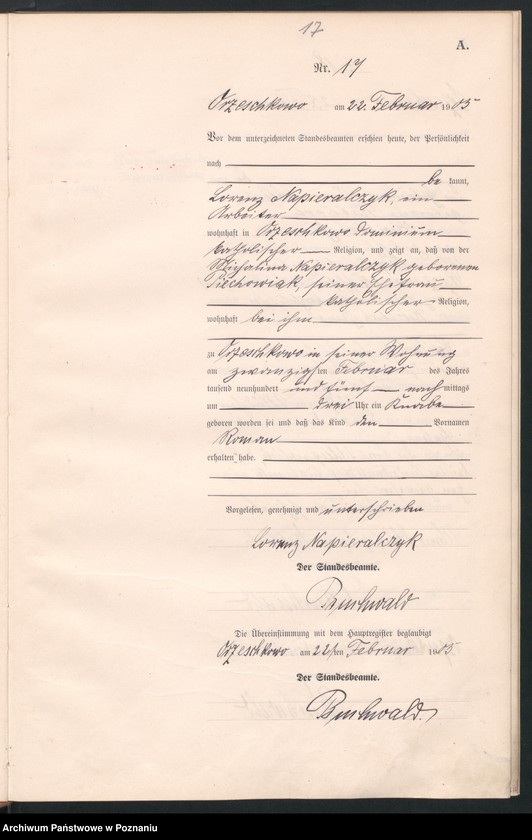 17
A.
Nr. 17
Orzeschkowo am 22. Februar 1905
Vor dem unterzeichneten Standesbeamten erschien heute, der Persönlichkeit
nach
be kannt,
Lorenz Napieralczyk, ein
Arbeiter
wohnhaft in Orzeschkowo Dominium
katholischer Religion, und zeigt an, daß von der
Michalina Napieralczyk geborenen
Piechowiak, seiner Ehefrau
katholischer Religion,
wohnhaft bei ihm
zu Orzeschkowo in seiner Wohnung
am zwanzigsten Februar des Jahres
tausend neunhundert und fünf nachmittags
um drei Uhr ein Knabe
geboren worden sei und daß das Kind den Vornamen
Roman
erhalten habe.
Vorgelesen, genehmigt und unterschrieben
Lorenz Napieralczyk
Der Standesbeamte.
Buchwald
Die Übereinstimmung mit dem Hauptregister beglaubigt
Orzeschkowo am 22ten Februar 1905.
Der Standesbeamte.
Buchwald.
Archiwum Państwowe w Poznaniu